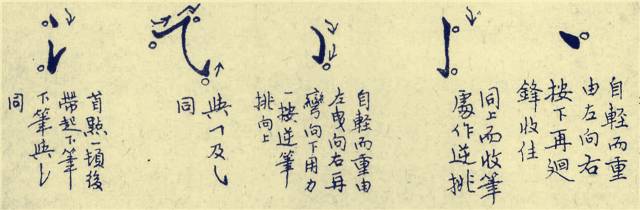 自輕而重
由左向右
按下再廻
鋒收住
同上而收筆
處作逆挑
自輕而重由
左曳向右再
彎向下用力
一按逆筆
挑向上
與㇕及㇂
同
首點一頓後
帶起下筆
下筆與㇂
同